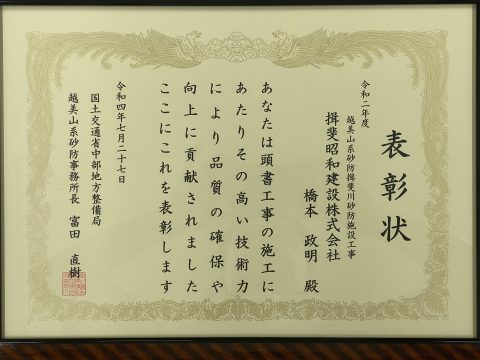 表彰状
令和二年度
越美山系砂防揖斐川砂防施設工事
揖斐昭和建設株式会社
橋本 政明 殿
あなたは頭書工事の施工に
あたりその高い技術力
により品質の確保や
向上に貢献されました
ここにこれを表彰します
令和四年七月二十七日
国土交通省中部地方整備局
越美山系砂防事務所長 富田 直樹